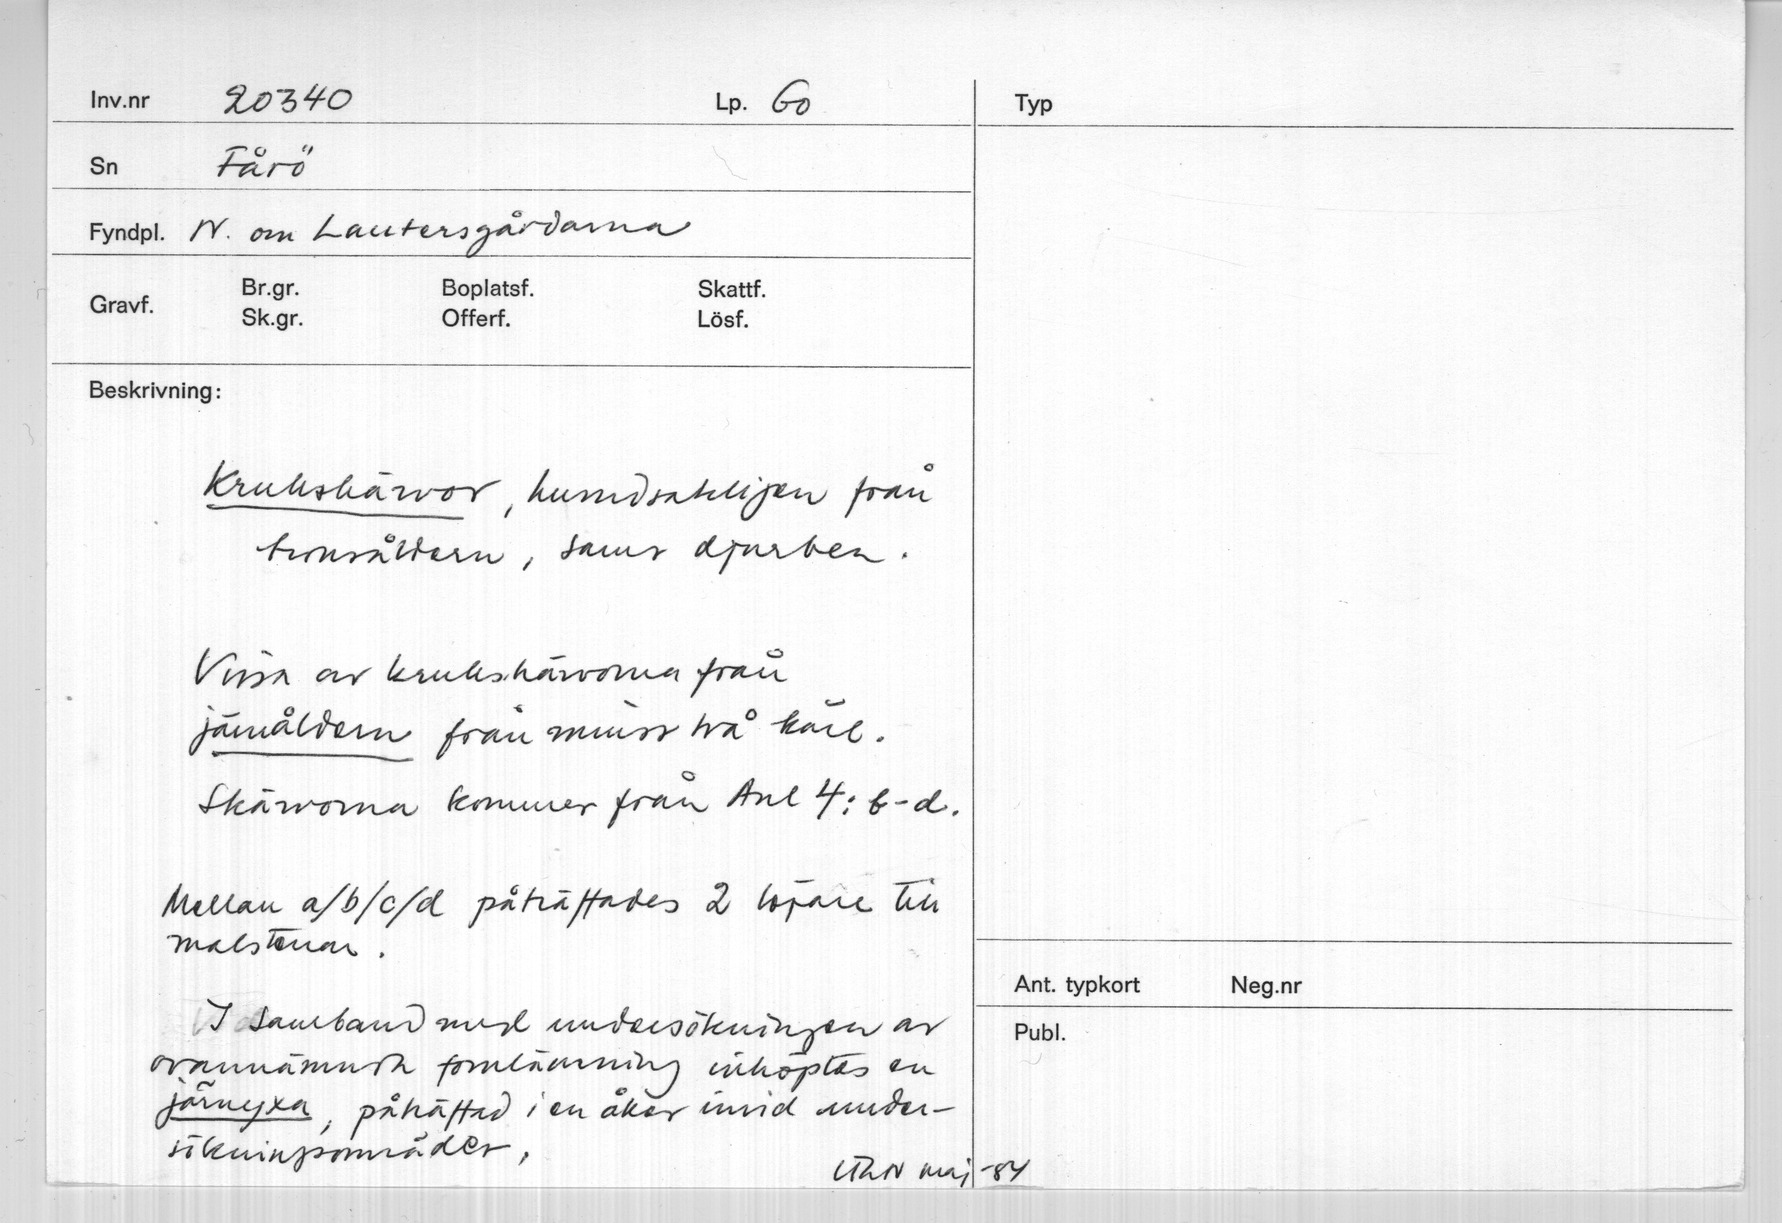 Inv.nr 20340 Lp. Go
Sn Fårö
Fyndpl. N. om Lautersgårdarna
Gravf. Br.gr. Boplatsf. Skattf.
Sk.gr. Offerf. Lösf.
Beskrivning:
Krukskärvor, huvudsakligen från
bronsåldern, samt djurben.
Vissa av krukskärvorna från
järnåldern från minst två kärl.
Skärvorna kommer från Anl 4: b-d.
Mellan a/b/c/d påträffades 2 löpare till
malstenar.
I samband med undersökningen av
ovannämnda fornlämning inköptes en
järnyxa, påträffad i en åker invid under-
sökningsområdet.
maj -84
Typ
Ant. typkort Neg.nr
Publ.